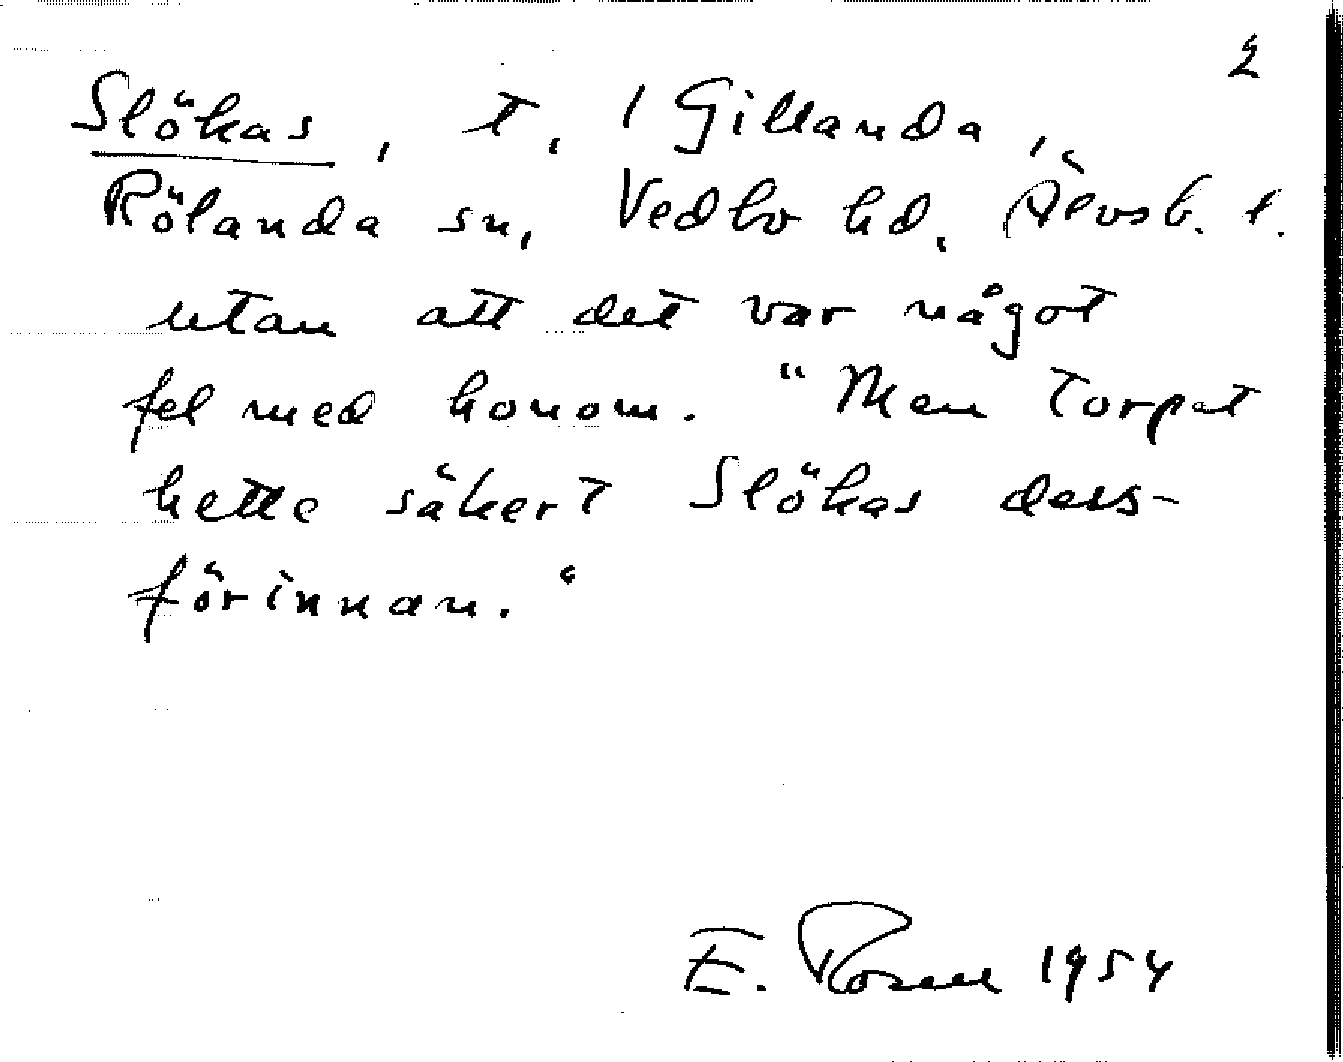 2
Slökas, t. i Gillanda,
Rölanda sn, Vedbo hd, Älvsb. l.
utan att det var något
fel med honom. "Men torpet
hette säkert Slökas dess-
förinnan."
E. Rosell 1954